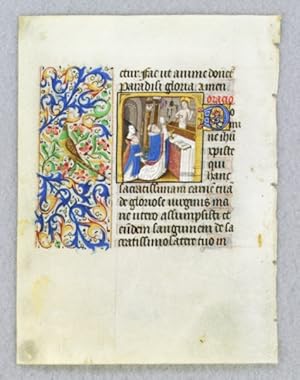 ctur. fac ut anime donet
paradisi gloria. amen
oratio
Do
mi
ne ihu
xpiste
qui
hanc
sacratissimam carne tua
de gloriose virginis ma
rie utero assumpsisti et
eūdem sanguinem de sa
cratissimo latere tuo in